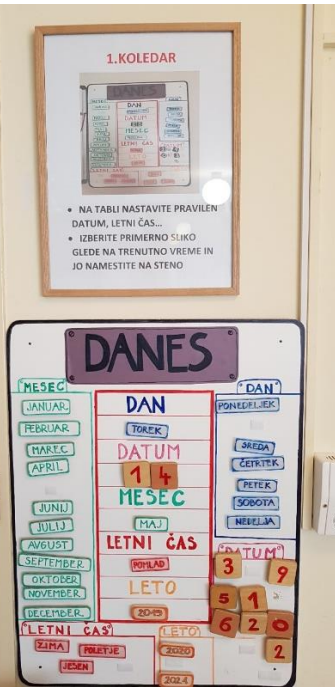 1.KOLEDAR
DANES
• NA TABLI NASTAVITE PRAVILEN
DATUM, LETNI ČAS...
• IZBERITE PRIMERNO SLIKO
GLEDE NA TRENUTNO VREME IN
JO NAMESTITE NA STENO
DANES
MESEC
JANUAR
FEBRUAR
MAREC
APRIL
JUNIJ
JULIJ
AVGUST
SEPTEMBER
OKTOBER
NOVEMBER
DECEMBER
DAN
TOREK
DATUM
1 4
MESEC
MAJ
LETNI ČAS
POMLAD
LETO
2019
DAN
PONEDELJEK
SREDA
ČETRTEK
PETEK
SOBOTA
NEDELJA
DATUM
3 9
5 1
6 2 0
2
LETNI ČAS
ZIMA POLETJE
JESEN
LETO
2020
2021